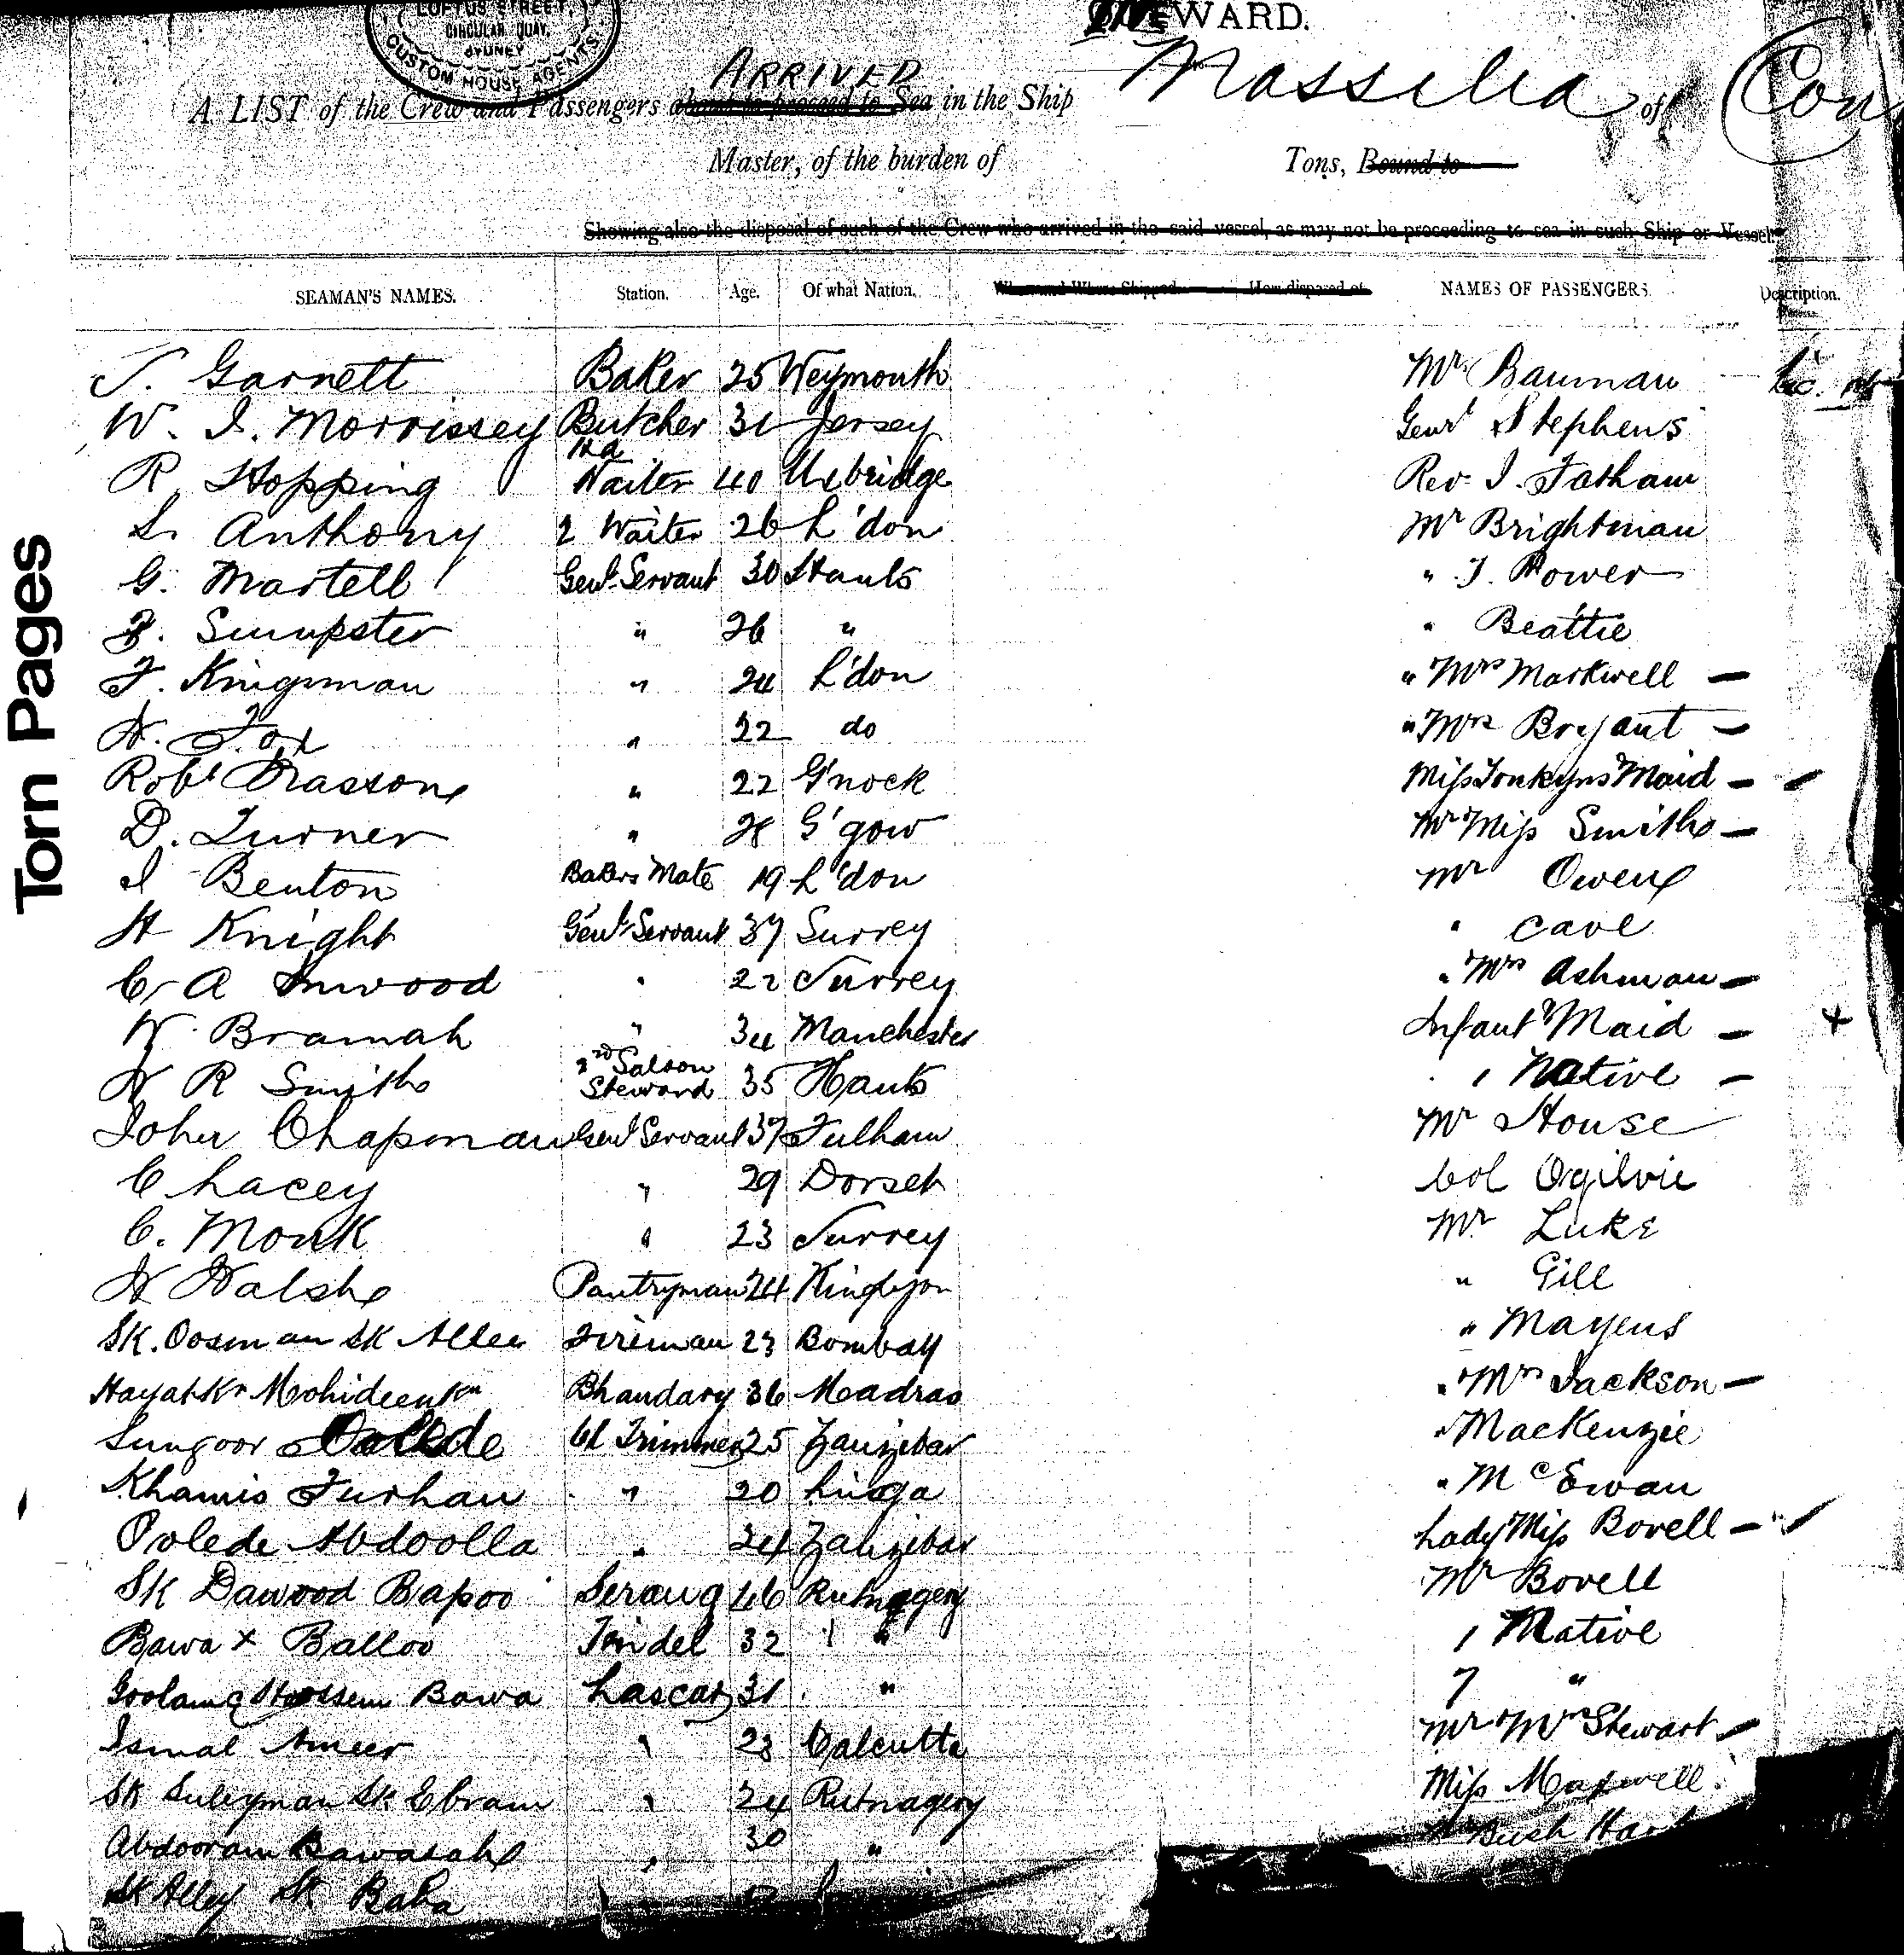 LOFTUS STREET,
CIRCULAR QUAY,
SYDNEY
CUSTOM HOUSE AGENTS.
WARD.
ARRIVED
A LIST of the Crew and Passengers about to proceed to Sea in the Ship Massilia of
Master, of the burden of Tons, Bound to
Showing also the disposal of such of the Crew who arrived in the said vessel, as may not be proceeding to sea in such Ship or Vessel.
SEAMAN'S NAMES. Station. Age. Of what Nation. When and Where Shipped. How disposed of. NAMES OF PASSENGERS. Description.
Torn Pages
J. Garnett Baker 25 Weymouth Mr Bauman
W. J. Morrissey Butcher 31 Jersey Genl Stephens
R Hopping Hd Waiter 40 Uxbridge Rev. J. Tatham
L. Anthony 2 Waiter 26 L'don Mr Brightman
G. Martell Genl Servant 30 Hants " J. Power
Sumpster " 26 " " Beattie
F. Kingsman " 24 L'don " Mrs Markwell —
H. Fox " 22 do " Mrs Bryant —
Robt " 22 G'nock Miss Tonkyns Maid —
D. Turner " 28 G'gow Mr Miss Smith —
J Benton Bakers Mate 19 L'don Mr Owen
H Knight Genl Servant 37 Surrey " Cave
C A Inwood " 22 Surrey " Mrs Ashman —
W. Bramah " 34 Manchester Infant & Maid — +
W R Smith 2nd Saloon Steward 35 Hants 1 Native —
John Chapman Genl Servant 37 Fulham Mr House
C Lacey " 29 Dorset Col Ogilvie
C. Monk " 23 Surrey Mr Luke
W Walsh Pantryman 24 " Gill
Sk. Oosman Sk Allee Fireman 23 Bombay " Mayens
Hayat Kn Mohideen Kn Bhandary 36 Madras " Mrs Jackson —
Sungoor Cl Trimmer 25 Zanzibar " MacKenzie
Khamis Furhan " 20 Linga " McEwan
Polede Abdoolla " 24 Zanzibar Lady & Miss Bovell —
Sk Dawood Bapoo Serang 46 Rutnagery Mr Bovell
Bawa x Balloo Tindel 32 " 1 Native
Goolam Hoosein Bawa Lascar 31 " 7 "
Ismal Ameer " 23 Calcutta Mr & Mrs Stewart —
Sk Suleyman Sk Ebram " 24 Rutnagery Miss Maxwell
Abdooram Bawasahe " 30 " Bush
Sk Alley Sk Baba